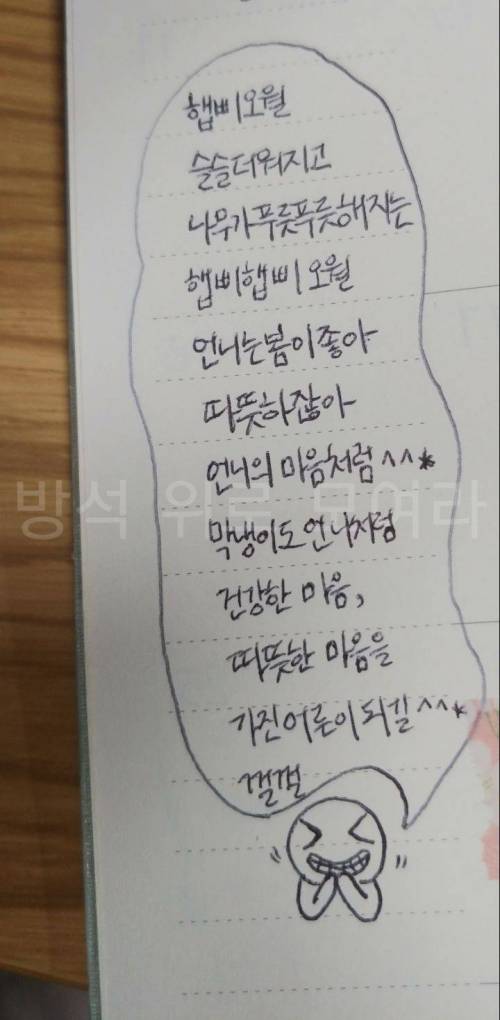 햅삐오월
슬슬더워지고
나무가푸릇푸릇해지는
햅삐햅삐 오월
언니는봄이좋아
따뜻하잖아
언니의 마음처럼^^*
방석 위로 모여라
막냉이도 언니처럼
건강한 마음,
따뜻한 마음을
가진어른이되길^^*
껠껠